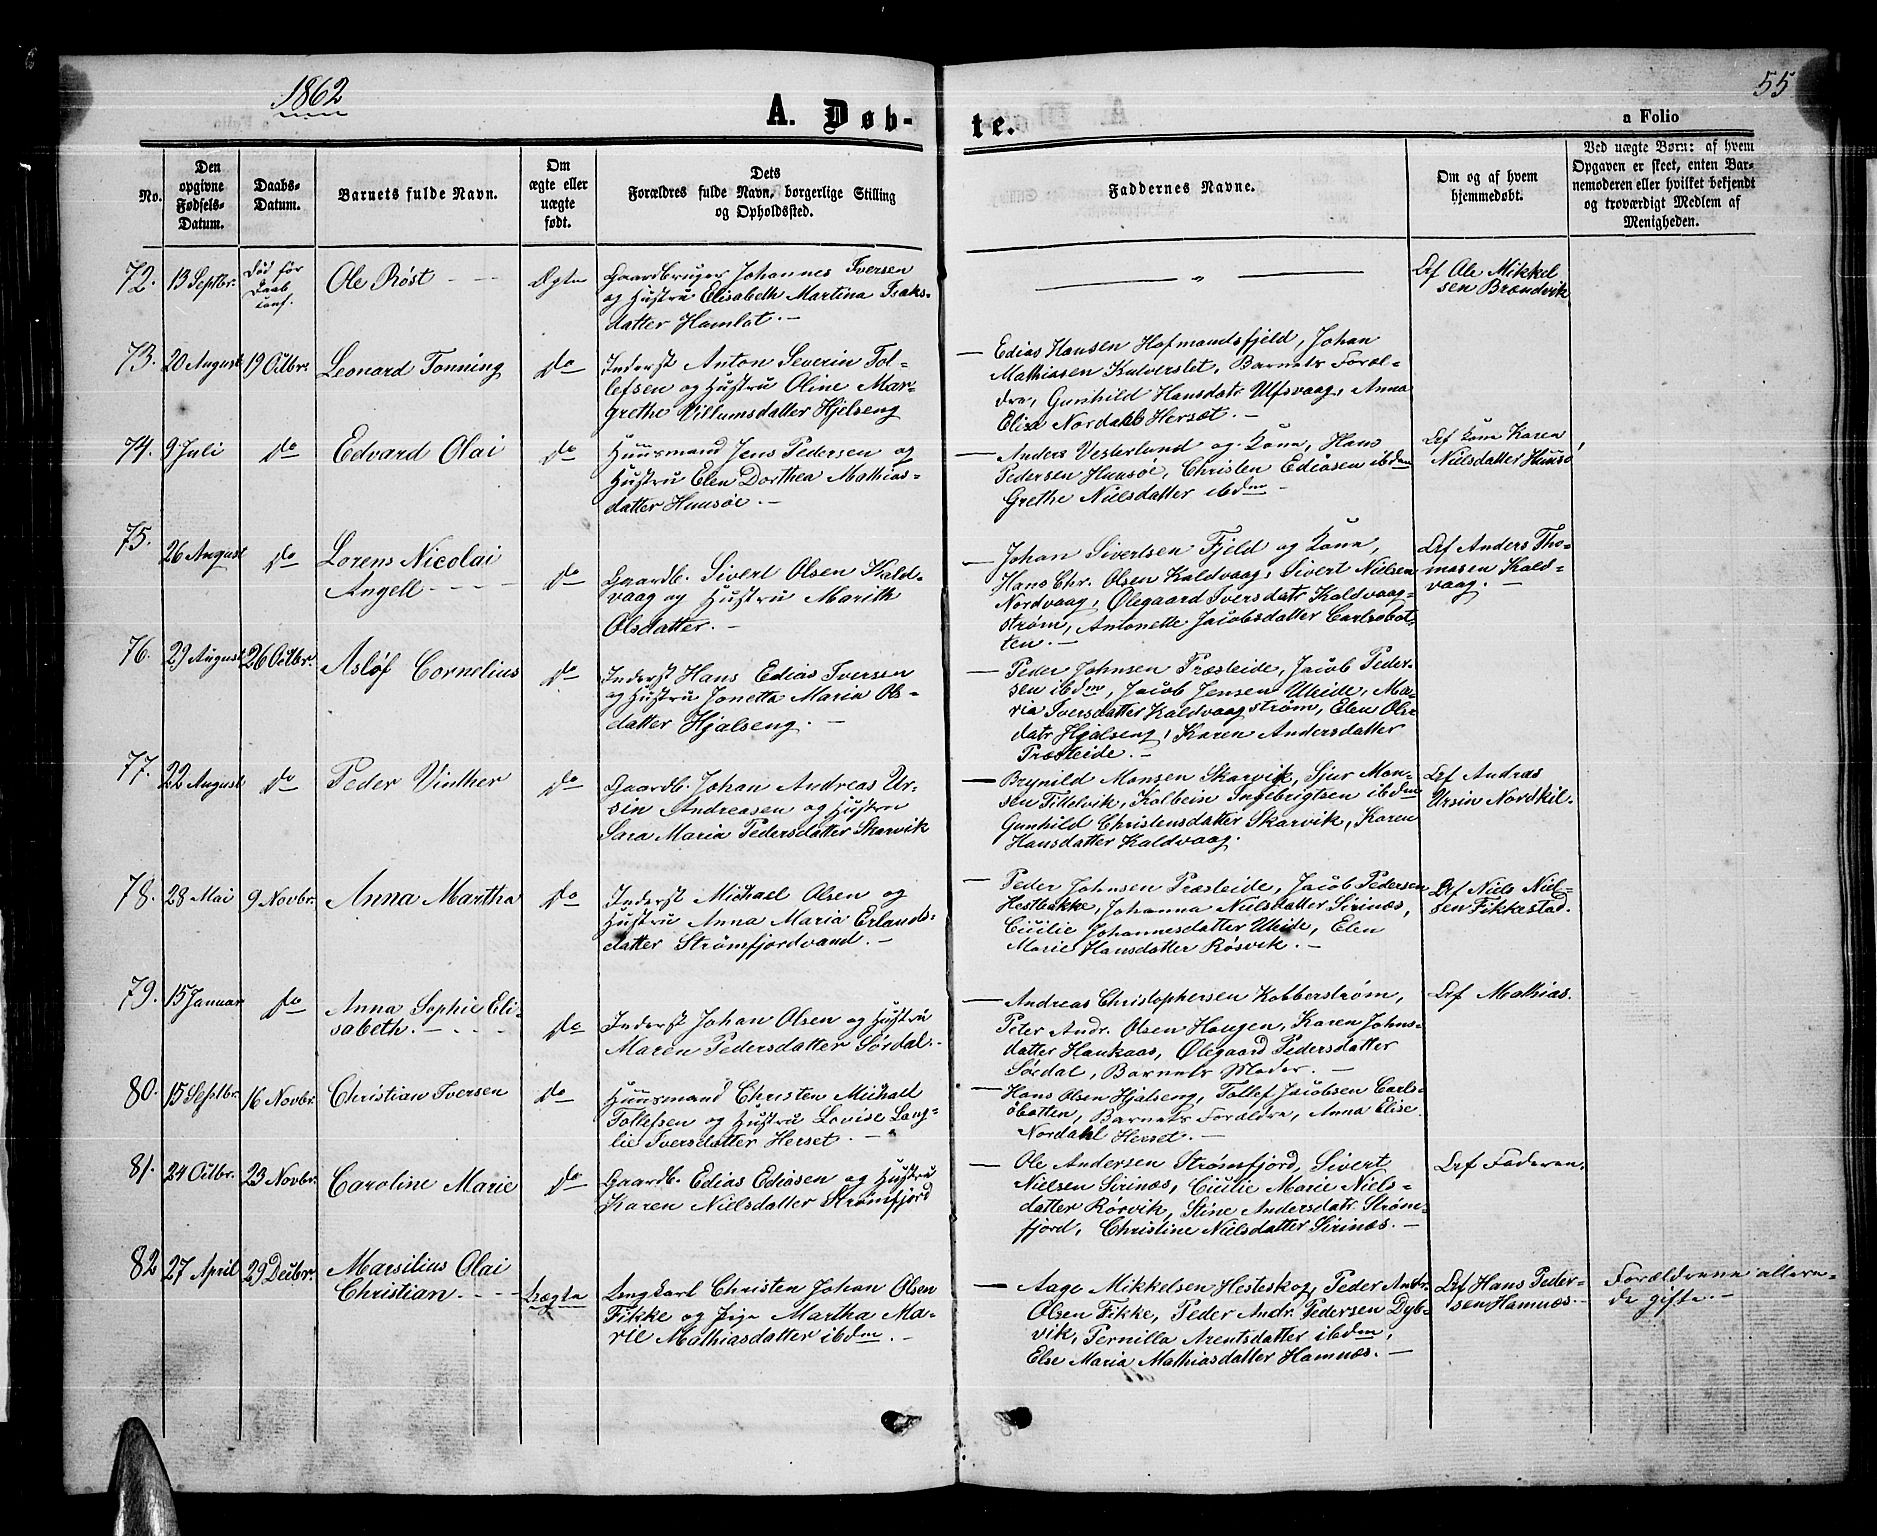 1862
55
A. Døb-
te.
a Folio
No.
Den
opgivne
Fødsels-
Datum.
Daabs-
Datum.
Barnets fulde Navn.
Om
ægte eller
uægte
født.
Dets
Forældres fulde Navn, borgerlige Stilling
og Opholdssted.
Faddernes Navne.
Om og af hvem
hjemmedøbt.
Ved uægte Børn: af hvem
Opgaven er skeet, enten Bar-
nemoderen eller hvilket bekjendt
og troværdigt Medlem af
Menigheden.
72. 13 Septbr.
Død før
Daab
conf.
Ole Röst
Ægte
Gaardbruger Johannes Iversen
og Hustru Elisabeth Martina Isaks-
datter Hamlot. -
"
Lrf Ole Mikkel
sen Brændvik
73. 20 August 19 Octbr.
Leonard Tonning
do
Inderst Anton Severin Tol-
lefsen og Hustru Oline Mar-
grethe Villumsdatter Hjelseng
- Edias Hansen Hofmandsfjeld, Johan
Mathiasen Kalverslet, Barnets Foræl-
dre, Gunhild Hansdatr Ulfsvaag, Anna
Elise Nordahl Herset. -
74. 9 Juli do
Edvard Olai
do
Huusmand Jens Pedersen og
Hustru Elen Dorthea Mathias-
datter Huusöe. -
- Anders Vesterlund og Kone, Hans
Pedersen Huusöe, Christen Ediasen ibdm
Grethe Nielsdatter ibdm -
Lrf Kone Karen
Nielsdatter Huusö
75. 26 August do
Lorens Nicolai
Angell
do
Gaardb. Sivert Olsen Kald-
vaag og Hustru Marith
Olsdatter. -
- Johan Sivertsen Fjeld og Kone,
Hans Chr. Olsen Kaldvaag, Sivert Nielsen
Nordvaag, Ølegaard Iversdatr Kaldvaag-
strøm, Antonette Jacobsdatter Carlsøbot-
ten. -
Lrf Anders Tho-
masen Kald-
vaag. -
76. 29 August 26 Octbr.
Asløf Cornelius
do
Inderst Hans Edias Iversen
og Hustru Jonetta Maria Ols-
datter Hjalseng. -
- Peder Johnsen Præsteide, Jacob Peder-
sen ibdm, Jacob Jensen Uleide, Ma-
ria Iversdatter Kaldvaagstrøm, Elen Ols-
datr Hjalseng, Karen Andersdatter
Præsteide. -
77. 22 August do
Peder Vinther
do
Gaardb. Johan Andreas Ur-
sin Andreasen og Hustru
Sara Maria Pedersdatter Skarvik
- Brynild Monsen Skarvik, Sjur Mon-
sen Tittelvik, Kolbein Ingebrigtsen ibdm
Gunhild Christensdatter Skarvik, Karen
Hansdatter Kaldvaag.
Lrf Andreas
Ursin Nordkil.
78. 28 Mai 9 Novbr.
Anna Martha
do
Inderst Michael Olsen og
Hustru Anna Maria Erlands-
datter Strømfjordvand. -
- Peder Johnsen Præsteide, Jacob Pedersen
Hestbakke, Johanna Nielsdatter Sirinæs,
Cicilie Johannesdatter Uleide, Elen
Marie Hansdatter Røsvik. -
Lrf Niels Niel-
sen Fikkestad.
79. 15 Januar do
Anna Sophie Eli-
sabeth. -
do
Inderst Johan Olsen og Hustru
Maren Pedersdatter Sørdal. -
- Andreas Christophersen Kobberstrøm,
Peter Andr. Olsen Haugen, Karen Johns-
datter Haukaas, Ølegaard Pedersdatter
Sørdal, Barnets Moder. -
Lrf Mathias.
80. 15 Septbr. 16 Novbr.
Christian Iversen
do
Huusmand Christen Michael
Tollefsen og Hustru Lovise Lang-
lie Iversdatter Herset. -
- Hans Olsen Hjalseng, Tollef Jacobsen Carls-
øbotten, Barnets Forældre, Anna Elise
Nordahl Herset. -
81. 24 Octbr. 23 Novbr.
Caroline Marie
do
Gaardb. Edias Ediasen og Hustru
Karen Nielsdatter Strømfjord
- Ole Andersen Strømfjord, Sivert
Nielsen Sirinæs, Cicilie Marie Niels-
datter Rørvik, Stine Andersdatr. Strøm-
fjord, Christine Nielsdatter Sirinæs. -
Lrf Faderen.
82 27 April 29 Decbr.
Marsilius Olai
Christian
Uægte
Ungkarl Christen Johan Olsen
Fikke og Pige Martha Ma-
rie Mathiasdatter ibdm. -
- Aage Mikkelsen Hesteskog, Peder Andr.
Olsen Fikke, Peder Andr. Pedersen Dyb-
vik, Pernilla Arentsdatter ibdm,
Else Maria Mathiasdatter Hamnæs. -
Lrf Hans Peder-
sen Hamnæs. -
Forældrene allere-
de gifte. -